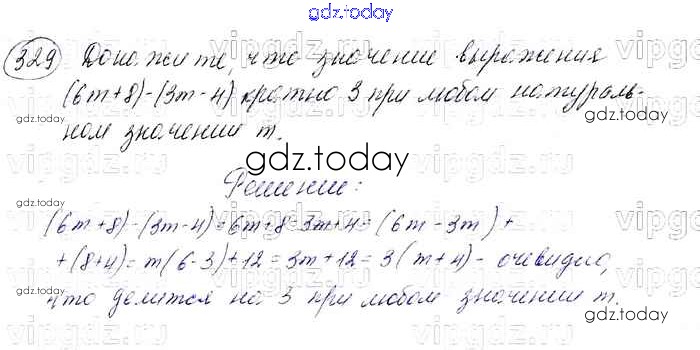 gdz.today
329 Докажите, что значение выражения
(6m+8)-(3m-4) кратно 3 при любом натураль-
ном значении m.
gdz.today
Решение:
(6m+8)-(3m-4)=6m+8-3m+4=(6m-3m)+
+(8+4)=m(6-3)+12=3m+12=3(m+4)- очевидно,
что делится на 3 при любом значении m.
gdz.today